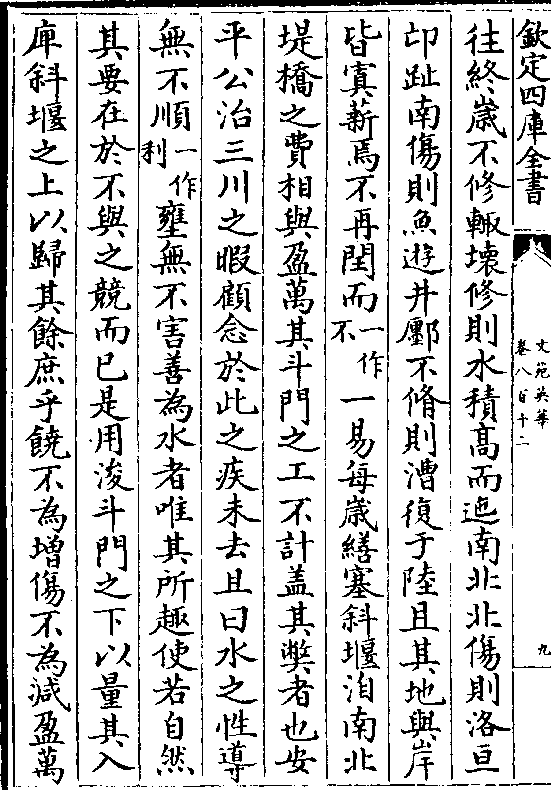 欽定四庫全書
文苑英華
卷八百十二
九
往終歲不修輙壊修則水積髙而迆南北北傷則洛亘
卬趾南傷則魚遊井鄽不脩則漕復于陸且其地與岸
皆寘薪焉不再閏而一作不一易每歲繕塞斜堰洎南北
堤橋之費相與盈萬其斗門之工不計盖其獘者也安
平公治三川之暇顧念於此之疾未去且曰水之性導
無不順一作利壅無不害善為水者唯其所趣使若自然
其要在於不與之競而已是用浚斗門之下以量其入
庳斜堰之上以歸其餘庶乎饒不為增傷不為減盈萬